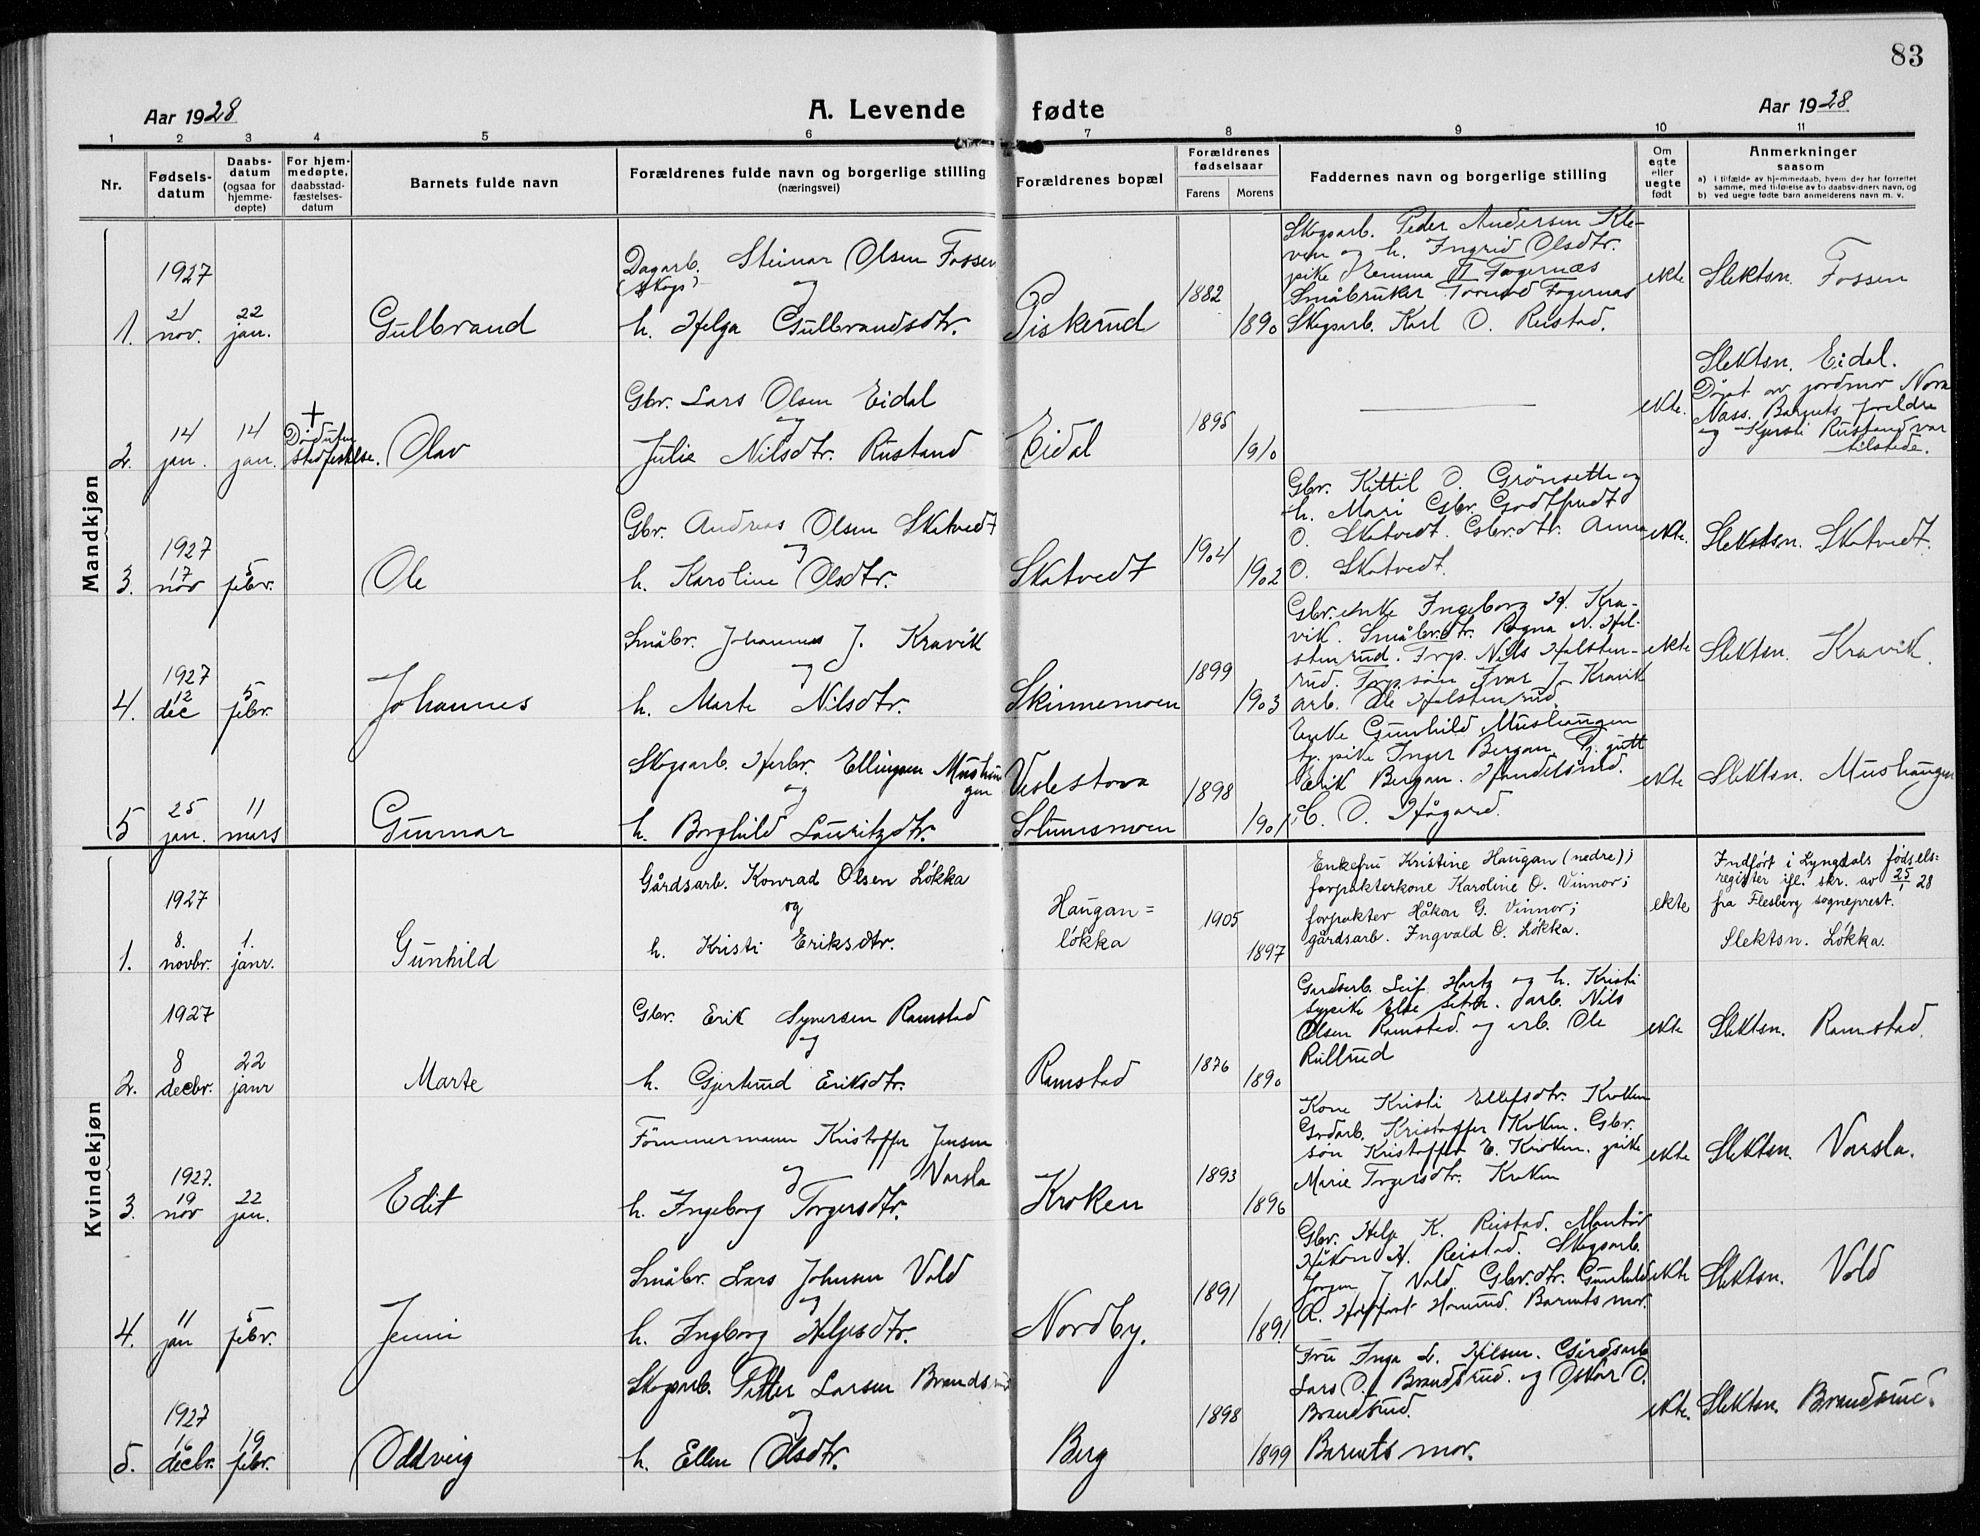 83
Aar 1928 A. Levende fødte Aar 1928
1 2 3 4 5 6 7 8 9 10 11
Nr.
Fødsels-
datum
Daabs-
datum
(ogsaa for
hjemme-
døpte)
For hjem-
medøpte,
daabsstad-
fæstelses-
datum
Barnets fulde navn
Forældrenes fulde navn og borgerlige stilling
(næringsvei)
Forældrenes bopæl
Forældrenes
fødselsaar
Farens Morens
Faddernes navn og borgerlige stilling
Om
egte
eller
uegte
født
Anmerkninger
saasom
a) i tilfælde av hjemmedaab, hvem der har forrettet
samme, med tilføielse av to daabsvidners navn, og
b) ved uegte fødte barn anmelderens navn m. v.
Mandkjøn
1.
1927
21
nov.
22
jan.
Gulbrand
Dagarb. Steinar Olsen Fossen
(Skogs)
og
h. Helga Gulbrandsdtr.
Piskerud
1882
1890
Skogsarb. Peder Andersen Kle-
ven og h. Ingrid Olsdtr.
pike Hemma Fagernæs
Småbruker Tormod Fagernæs
Skogsarb. Karl O. Rustad.
ekte
Slektsn. Fossen
2.
14
jan.
14
jan.
+
Død uten
stadfestelse.
Olav
Gbr. Lars Olsen Eidal
og
Julie Nilsdtr. Rustand
Eidal
1895
1910
ekte.
Slektsn. Eidal.
Døpt av jordmor Nora
Nass. Barnets foreldre
og Kjersti Rustand var
tilstede.
3.
1927
17
nov
5
febr.
Ole
Gbr. Andreas Olsen Skatvedt
og
h. Karoline Olsdtr.
Skatvedt
1904
1902
Gbr. Kittil O. Grønsette og
h. Mari Gbr. Godtfredt
O. Skatvedt. Gbr.dtr. Anna
O. Skatvedt.
ekte.
Slektsn. Skatvedt.
4.
1927
12
dec
5
febr.
Johannes
Småbr. Johannes J. Kravik
og
h. Marte Nilsdtr.
Skinnemoen
1899
1903
Gbr. enke Ingeborg H. Kra-
vik. Småbr.dtr. Ragna N. Hal-
stenrud. Forp. Nils Halsten-
rud. Forp.søn Ivar J. Kravik
arb. Ole Halstenrud.
ekte
Slektsn. Kravik.
5
25
jan.
11
mars
Gunnar
Skogsarb. Herbr. Ellingsen Mushau
gen
og
h. Borghild Lauritzdtr.
Veslestova
Slumsmoen
1898
1901
Enke Gunhild Mushaugen
pike Inger Bergan. gutt
Erik Bergan. Handelsmd.
C. O. Hågard.
ekte
Slektsn. Mushaugen
Kvindekjøn
1.
1927
8.
novbr.
1.
janr.
Gunhild
Gårdsarb. Konrad Olsen Løkka
og
h. Kristi Eriksdtr.
Haugan=
løkka
1905
1897
Enkefru Kristine Haugan (nedre);
forpakterkone Karoline O. Vinnor;
forpakter Håkon G. Vinnor;
gårdsarb. Ingvald O. Løkka.
ekte
Indført i Lyngdals fødsels=
register ifl. skr. av 25/1 28
fra Flesberg sogneprest.
Slektsn. Løkka.
2.
1927
8
decbr.
22
janr
Marte
Gbr. Erik Syversen Ramstad
og
h. Gjertrud Eriksdtr.
Ramstad
1876
1890
Gardsarb. Leif Hartz og h. Kristi
sypike Else arb. Nils
Olsen Ramstad og arb. Ole
Rullrud
ekte
Slektsn. Ramstad.
3.
1927.
19
nov
22
jan.
Edit
Tømmermann Kristoffer Jensen
Varsla
og
h. Ingeborg Torgersdtr.
Kroken
1893
1896
Kone Kristi Ellefsdtr. Kroken
Gardarb. Kristoffer Kroken. Gbr.
søn Kristoffer E. Kroken. pike
Marie Torgersdtr. Kroken
ekte
Slektsn. Varsla.
4.
11
jan
5
febr.
Jenni
Småbr. Lars Johnsen Vold
og
h. Ingborg Helgesdtr.
Nordby.
1891
1891
Gbr. Helge K. Reistad. Montør
Håkon H. Reistad. Skogsarb.
Jørgen J. Vold Gbr.dtr. Gunhild
A. Barnets mor.
ekte
Slektsn. Vold
5.
1927
16
decbr.
19
febr.
Oddveig
Skogsarb. Petter Larsen Brandsrud
og
h. Ellen Olsdtr.
Berg
1898
1899
Fru Inga L. Nilsen. Gårdsarb
Lars O. Brandsrud. og Oskar O.
Brandsrud.
Barnets mor.
ekte.
Slektsn. Brandsrud.